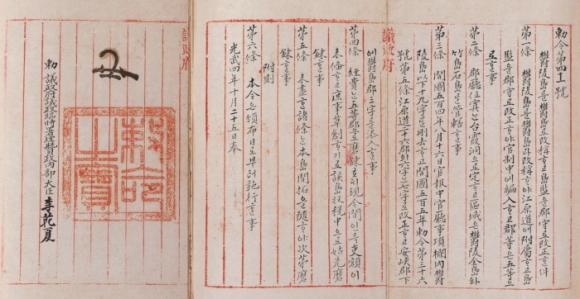 勅令第四十一號
鬱陵島를鬱島로改稱ᄒᆞ고島監을郡守로改正ᄒᆞᆫ件
第一條 鬱陵島를鬱島라改稱ᄒᆞ야江原道에附屬ᄒᆞ고島
監을郡守로改正ᄒᆞ야官制中에編入ᄒᆞ고郡等은五等으
로ᄒᆞᆯ事
第二條 郡廳位寘ᄂᆞᆫ台霞洞으로定ᄒᆞ고區域은鬱陵全島와
竹島石島를管轄ᄒᆞᆯ事
第三條 開國五百四年八月十六日官報中官廳事項欄內鬱
陵島以下十九字를刪去ᄒᆞ고開國五百五年勅令第三十六
號第五條江原道二十六郡의六字ᄂᆞᆫ七字로改正ᄒᆞ고安峽郡下
議政府
에鬱島郡三字를添入ᄒᆞᆯ事
第四條 經費ᄂᆞᆫ五等郡으로磨鍊호ᄃᆡ現今間인즉吏額이
未備ᄒᆞ고庶事草創ᄒᆞ기로該島收稅中으로姑先磨
鍊ᄒᆞᆯ事
第五條 未盡ᄒᆞᆫ諸條ᄂᆞᆫ本島開拓을隨ᄒᆞ야次第磨
鍊ᄒᆞᆯ事
附則
第六條 本令은頒布日로부터施行ᄒᆞᆯ事
光武四年十月二十五日奉
議政府
勅命之寶
勅 議政府議政臨時署理贊政內部大臣 李乾夏